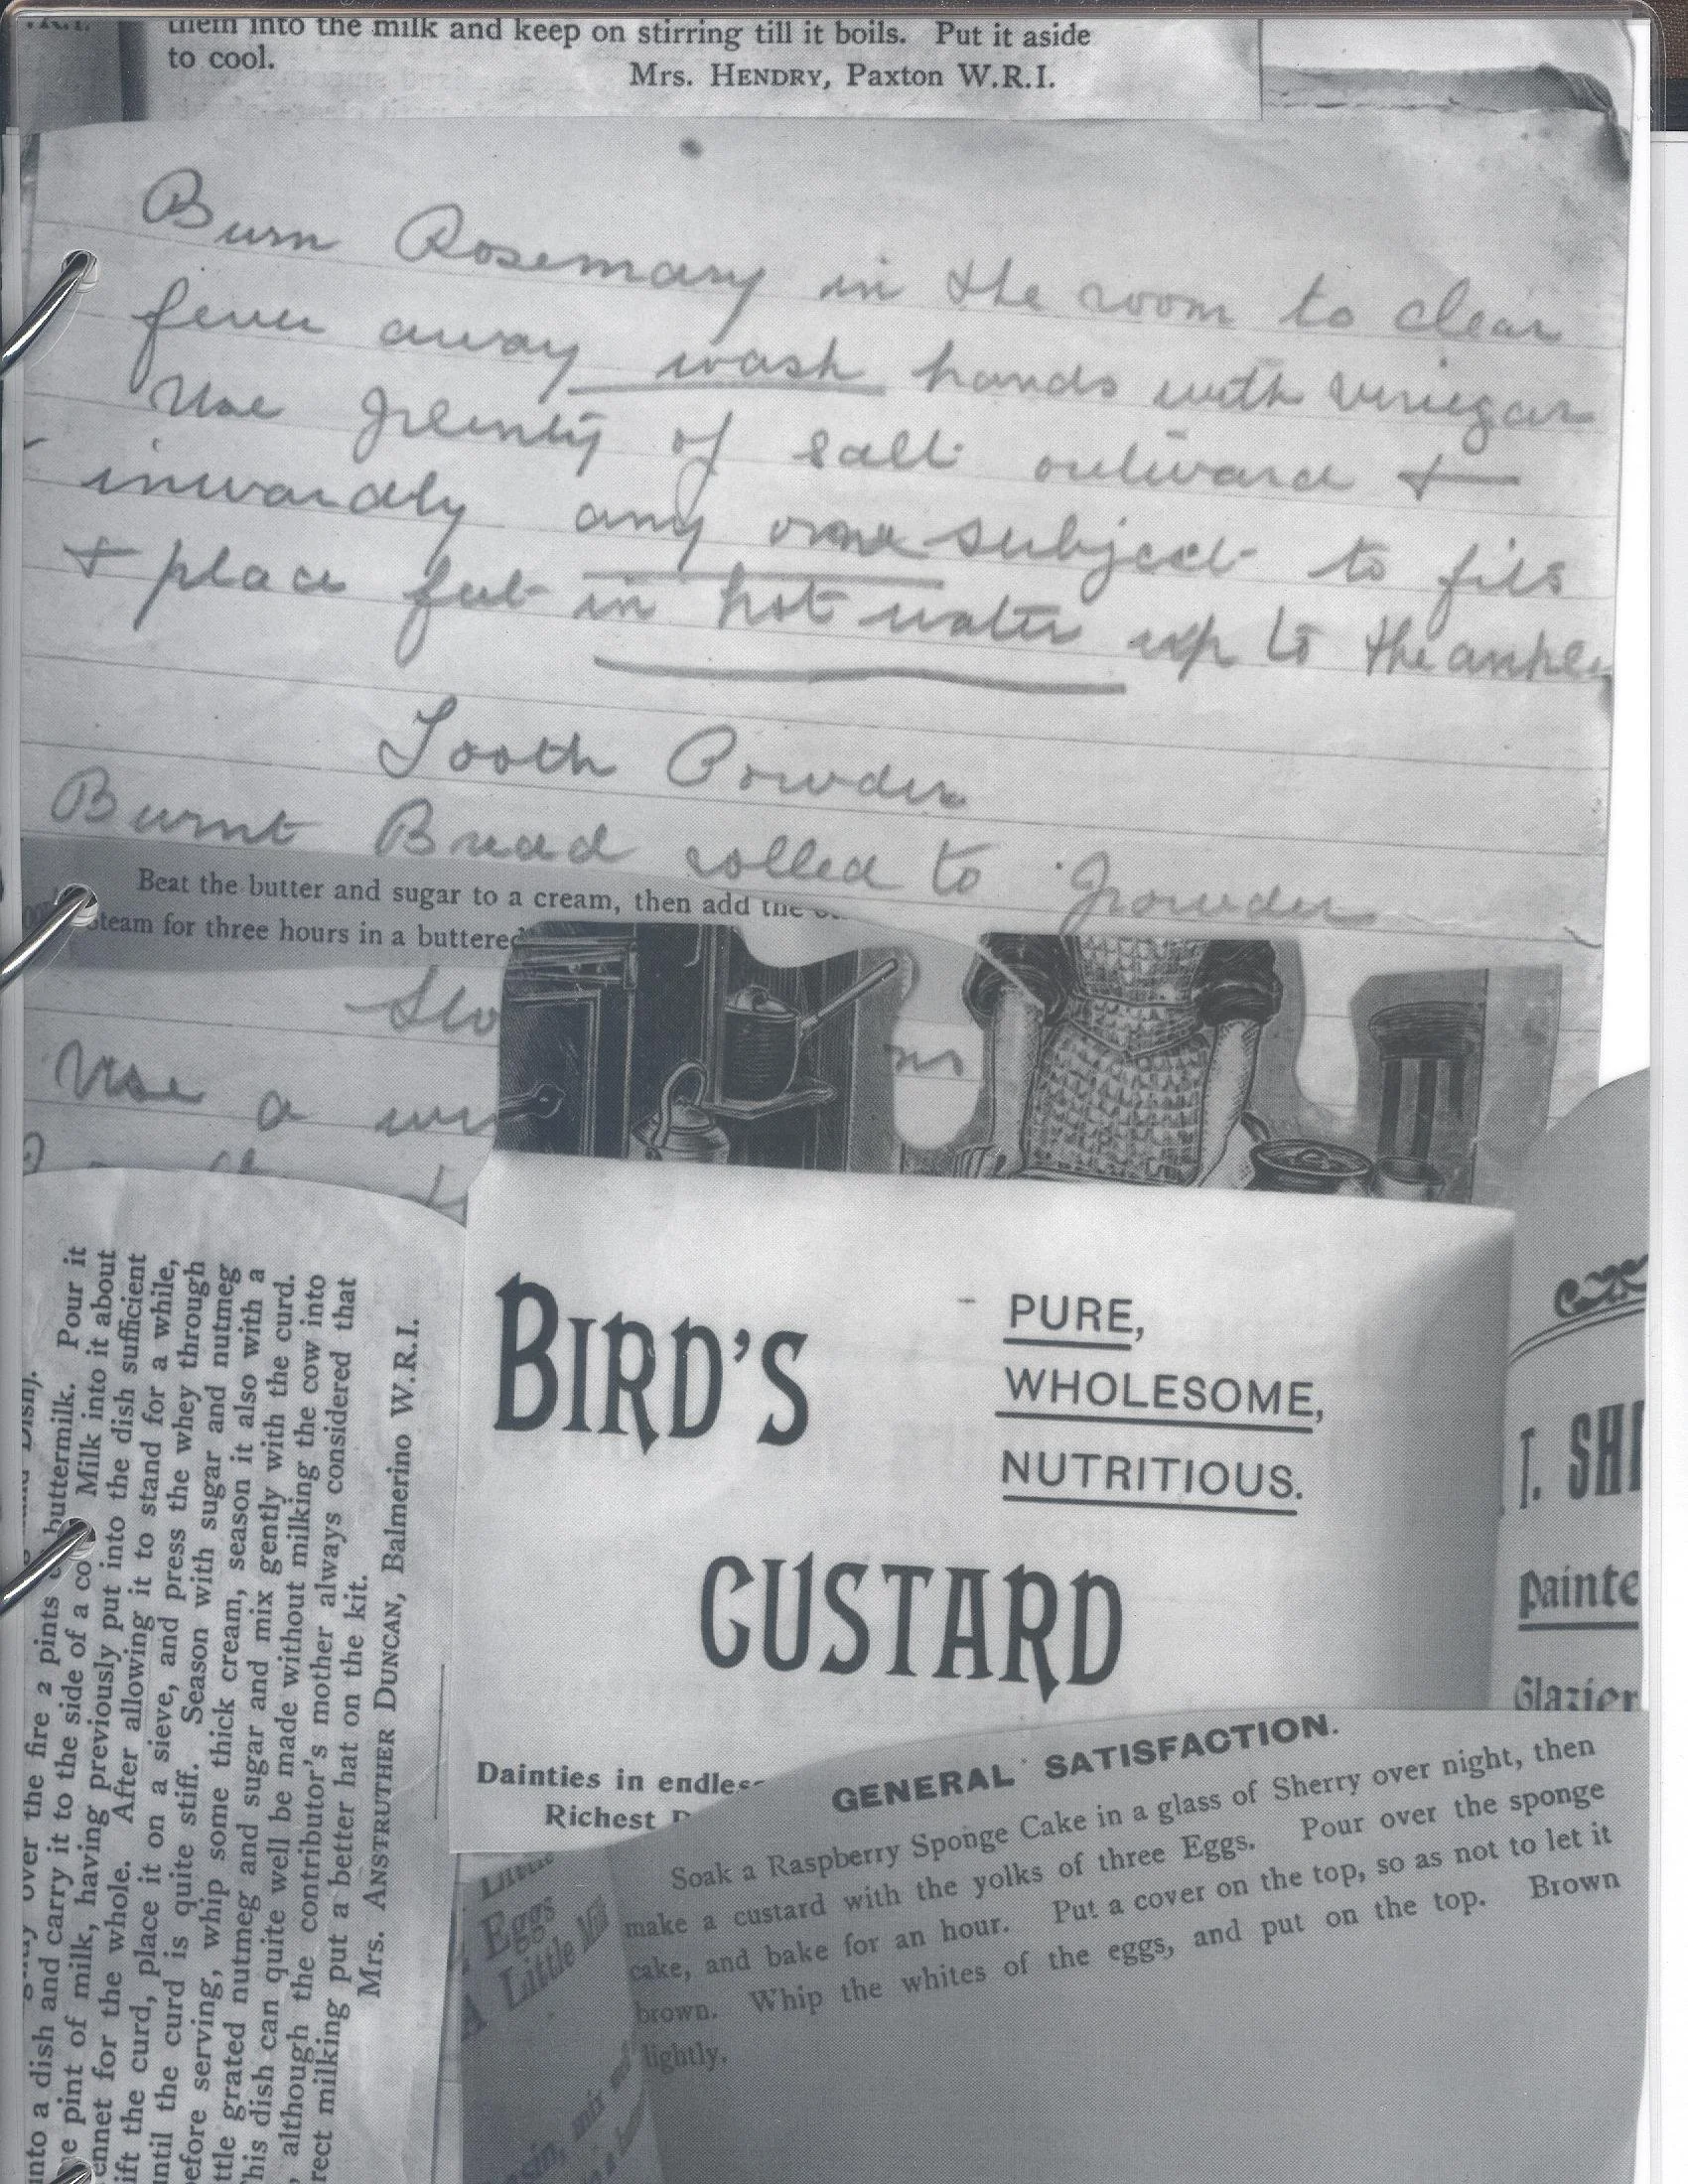 them into the milk and keep on stirring till it boils. Put it aside
to cool.
Mrs. HENDRY, Paxton W.R.I.
Burn Rosemary in the room to clear
fever away wash hands with vinegar
Use plenty of salt outward &
inwardly any one subject to fits
& place feet in hot water up to the ankles
Tooth Powder
Burnt Bread rolled to powder
Beat the butter and sugar to a cream, then add the
steam for three hours in a buttered
Use a
BIRD'S
PURE,
WHOLESOME,
NUTRITIOUS.
CUSTARD
Dainties in endless
Richest
T. SHI
Painte
Glazier
over the fire 2 pints buttermilk. Pour it
into a dish and carry it to the side of a co Milk into it about
pint of milk, having previously put into the dish sufficient
ennet for the whole. After allowing it to stand for a while,
ift the curd, place it on a sieve, and press the whey through
until the curd is quite stiff. Season with sugar and nutmeg
efore serving, whip some thick cream, season it also with a
ttle grated nutmeg and sugar and mix gently with the curd.
his dish can quite well be made without milking the cow into
, although the contributor's mother always considered that
rect milking put a better hat on the kit.
Mrs. ANSTRUTHER DUNCAN, Balmerino W.R.I.
GENERAL SATISFACTION.
Soak a Raspberry Sponge Cake in a glass of Sherry over night, then
make a custard with the yolks of three Eggs. Pour over the sponge
cake, and bake for an hour. Put a cover on the top, so as not to let it
brown. Whip the whites of the eggs, and put on the top. Brown
lightly.
Little
Eggs
A Little Milk